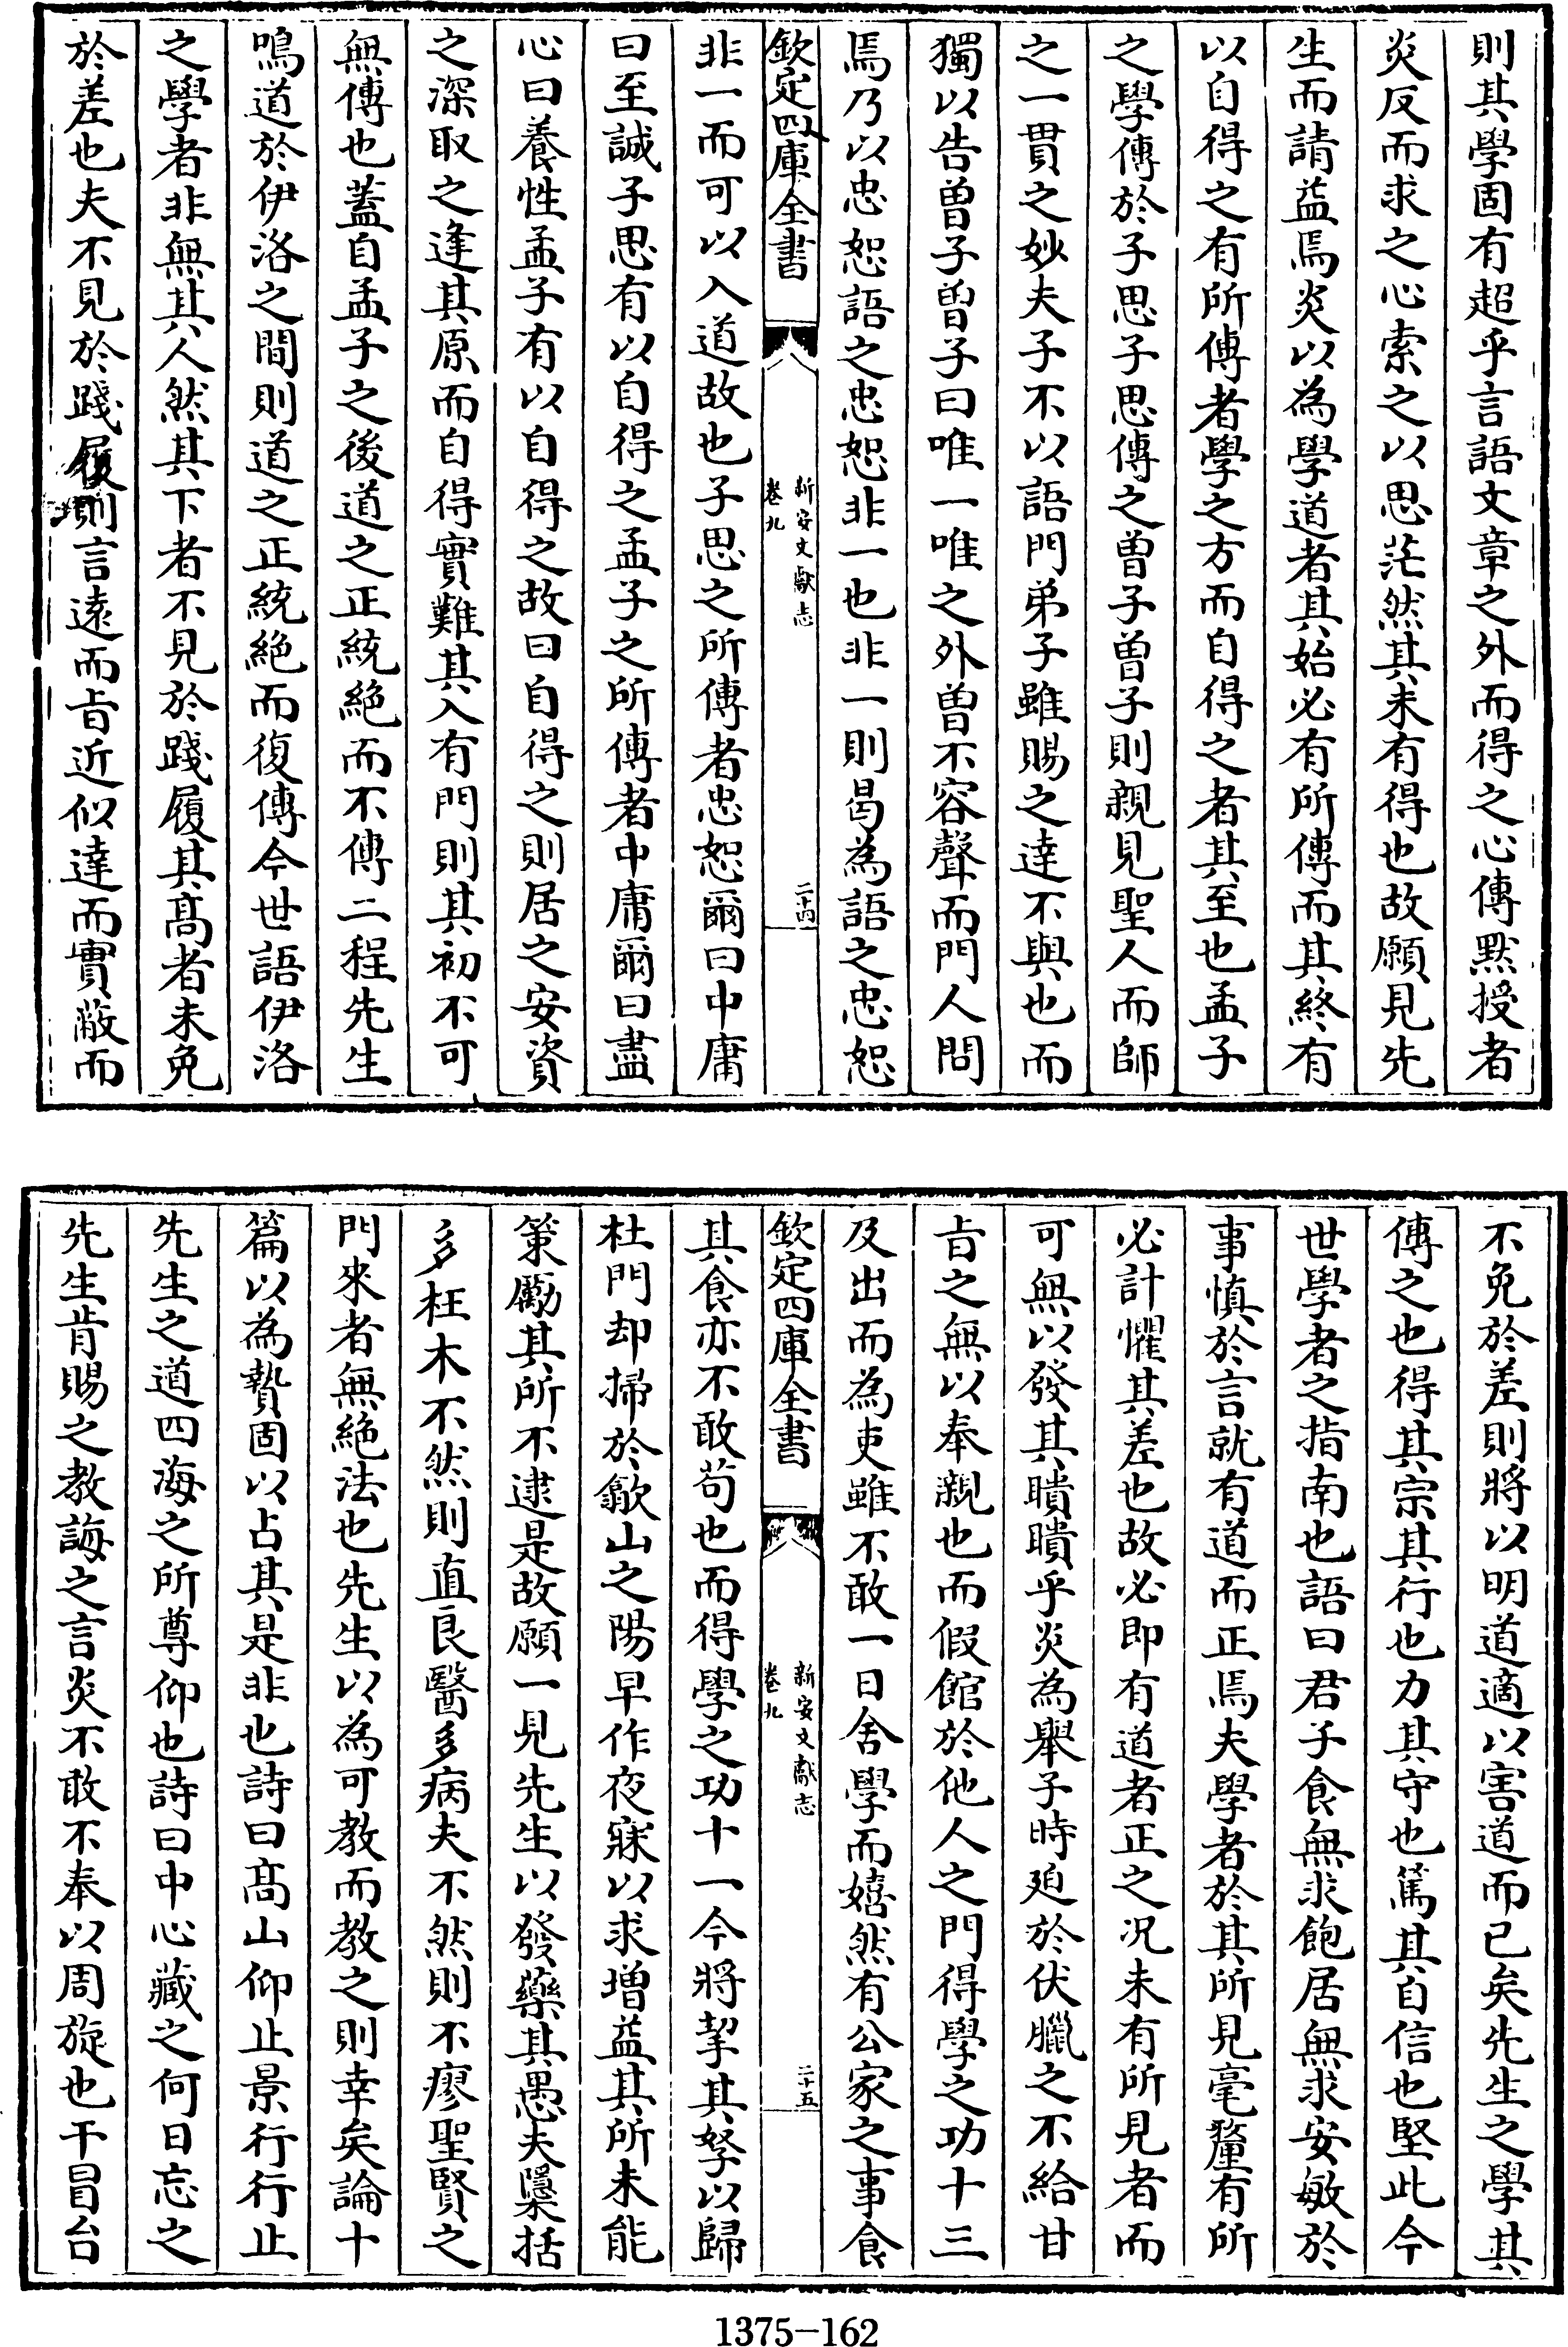 則其學固有超乎言語文章之外而得之心傳黙授者
炎反而求之心索之以思茫然其未有得也故願見先
生而請益焉炎以為學道者其始必有所傳而其終有
以自得之有所傳者學之方而自得之者其至也孟子
之學傳於子思子思傳之曽子曽子則親見聖人而師
之一貫之妙夫子不以語門弟子雖賜之達不與也而
獨以告曽子曽子曰唯一唯之外曽不容聲而門人問
焉乃以忠恕語之忠恕非一也非一則曷為語之忠恕
欽定四庫全書
新安文獻志
卷九
二十四
非一而可以入道故也子思之所傳者忠恕爾曰中庸
曰至誠子思有以自得之孟子之所傳者中庸爾曰盡
心曰養性孟子有以自得之故曰自得之則居之安資
之深取之逢其原而自得實難其入有門則其初不可
無傳也蓋自孟子之後道之正統絶而不傳二程先生
鳴道於伊洛之間則道之正統絶而復傳今世語伊洛
之學者非無其人然其下者不見於踐履其髙者未免
於差也夫不見於踐履則言逺而㫖近似達而實蔽而
不免於差則將以明道適以害道而已矣先生之學其
傳之也得其宗其行也力其守也篤其自信也堅此今
世學者之指南也語曰君子食無求飽居無求安敏於
事慎於言就有道而正焉夫學者於其所見毫釐有所
必計懼其差也故必即有道者正之况未有所見者而
可無以發其瞶瞶乎炎為舉子時廹於伏臘之不給甘
㫖之無以奉親也而假館於他人之門得學之功十三
及出而為吏雖不敢一日舍學而嬉然有公家之事食
欽定四庫全書
新安文獻志
卷九
二十五
其食亦不敢苟也而得學之功十一今將挈其孥以歸
杜門却掃於歙山之陽早作夜寐以求増益其所未能
策勵其所不逮是故願一見先生以發藥其愚夫櫽括
多枉木不然則直良醫多病夫不然則不廖聖賢之
門來者無絶法也先生以為可教而教之則幸矣論十
篇以為贄固以占其是非也詩曰髙山仰止景行行止
先生之道四海之所尊仰也詩曰中心藏之何日忘之
先生肯賜之教誨之言炎不敢不奉以周旋也干冒台
1375-162